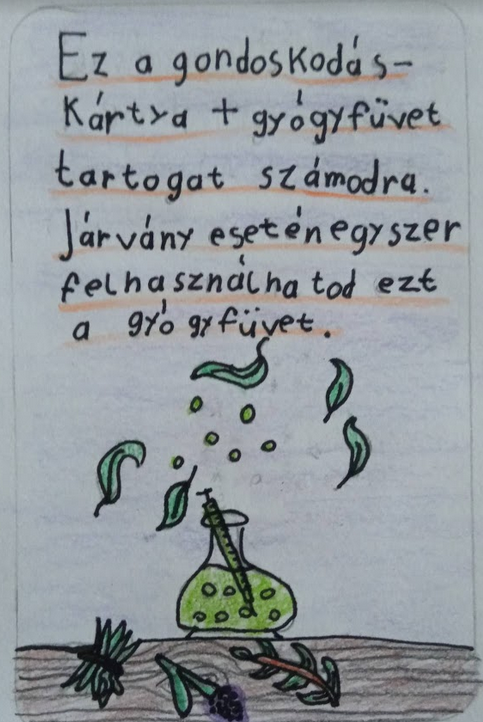 Ez a gondoskodás-
kártya + gyógyfüvet
tartogat számodra.
Járvány esetén egyszer
felhasználhatod ezt
a gyógyfüvet.